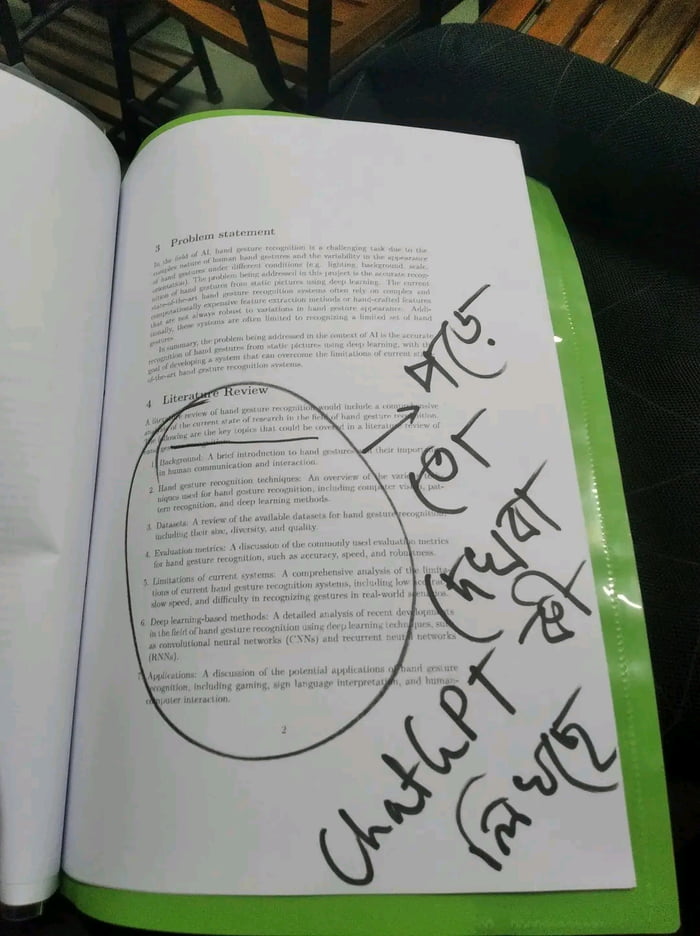 3 Problem statement
In the field of AI, hand gesture recognition is a challenging task due to the
complex nature of human hand gestures and the variability in the appearance
of hand gestures under different conditions (e.g. lighting, background, scale,
orientation). The problem being addressed in this project is the accurate recog-
nition of hand gestures from static pictures using deep learning. The current
state-of-the-art hand gesture recognition systems often rely on complex and
computationally expensive feature extraction methods or hand-crafted features
that are not always robust to variations in hand gesture appearance. Addi-
tionally, these systems are often limited to recognizing a limited set of hand
gestures.
In summary, the problem being addressed in the context of AI is the accurate
recognition of hand gestures from static pictures using deep learning, with the
goal of developing a system that can overcome the limitations of current state-
of-the-art hand gesture recognition systems.
4 Literature Review
A literature review of hand gesture recognition would include a comprehensive
analysis of the current state of research in the field of hand gesture recognition.
The following are the key topics that could be covered in a literature review of
hand gesture recognition:
1. Background: A brief introduction to hand gestures and their importance
in human communication and interaction.
2. Hand gesture recognition techniques: An overview of the various tech-
niques used for hand gesture recognition, including computer vision, pat-
tern recognition, and deep learning methods.
3. Datasets: A review of the available datasets for hand gesture recognition,
including their size, diversity, and quality.
4. Evaluation metrics: A discussion of the commonly used evaluation metrics
for hand gesture recognition, such as accuracy, speed, and robustness.
5. Limitations of current systems: A comprehensive analysis of the limita-
tions of current hand gesture recognition systems, including low accuracy,
slow speed, and difficulty in recognizing gestures in real-world scenarios.
6. Deep learning-based methods: A detailed analysis of recent developments
in the field of hand gesture recognition using deep learning techniques, such
as convolutional neural networks (CNNs) and recurrent neural networks
(RNNs).
7. Applications: A discussion of the potential applications of hand gesture
recognition, including gaming, sign language interpretation, and human-
computer interaction.
2
→ পড়ে
তো
দেখবা
ChatGPT কী
লিখছে